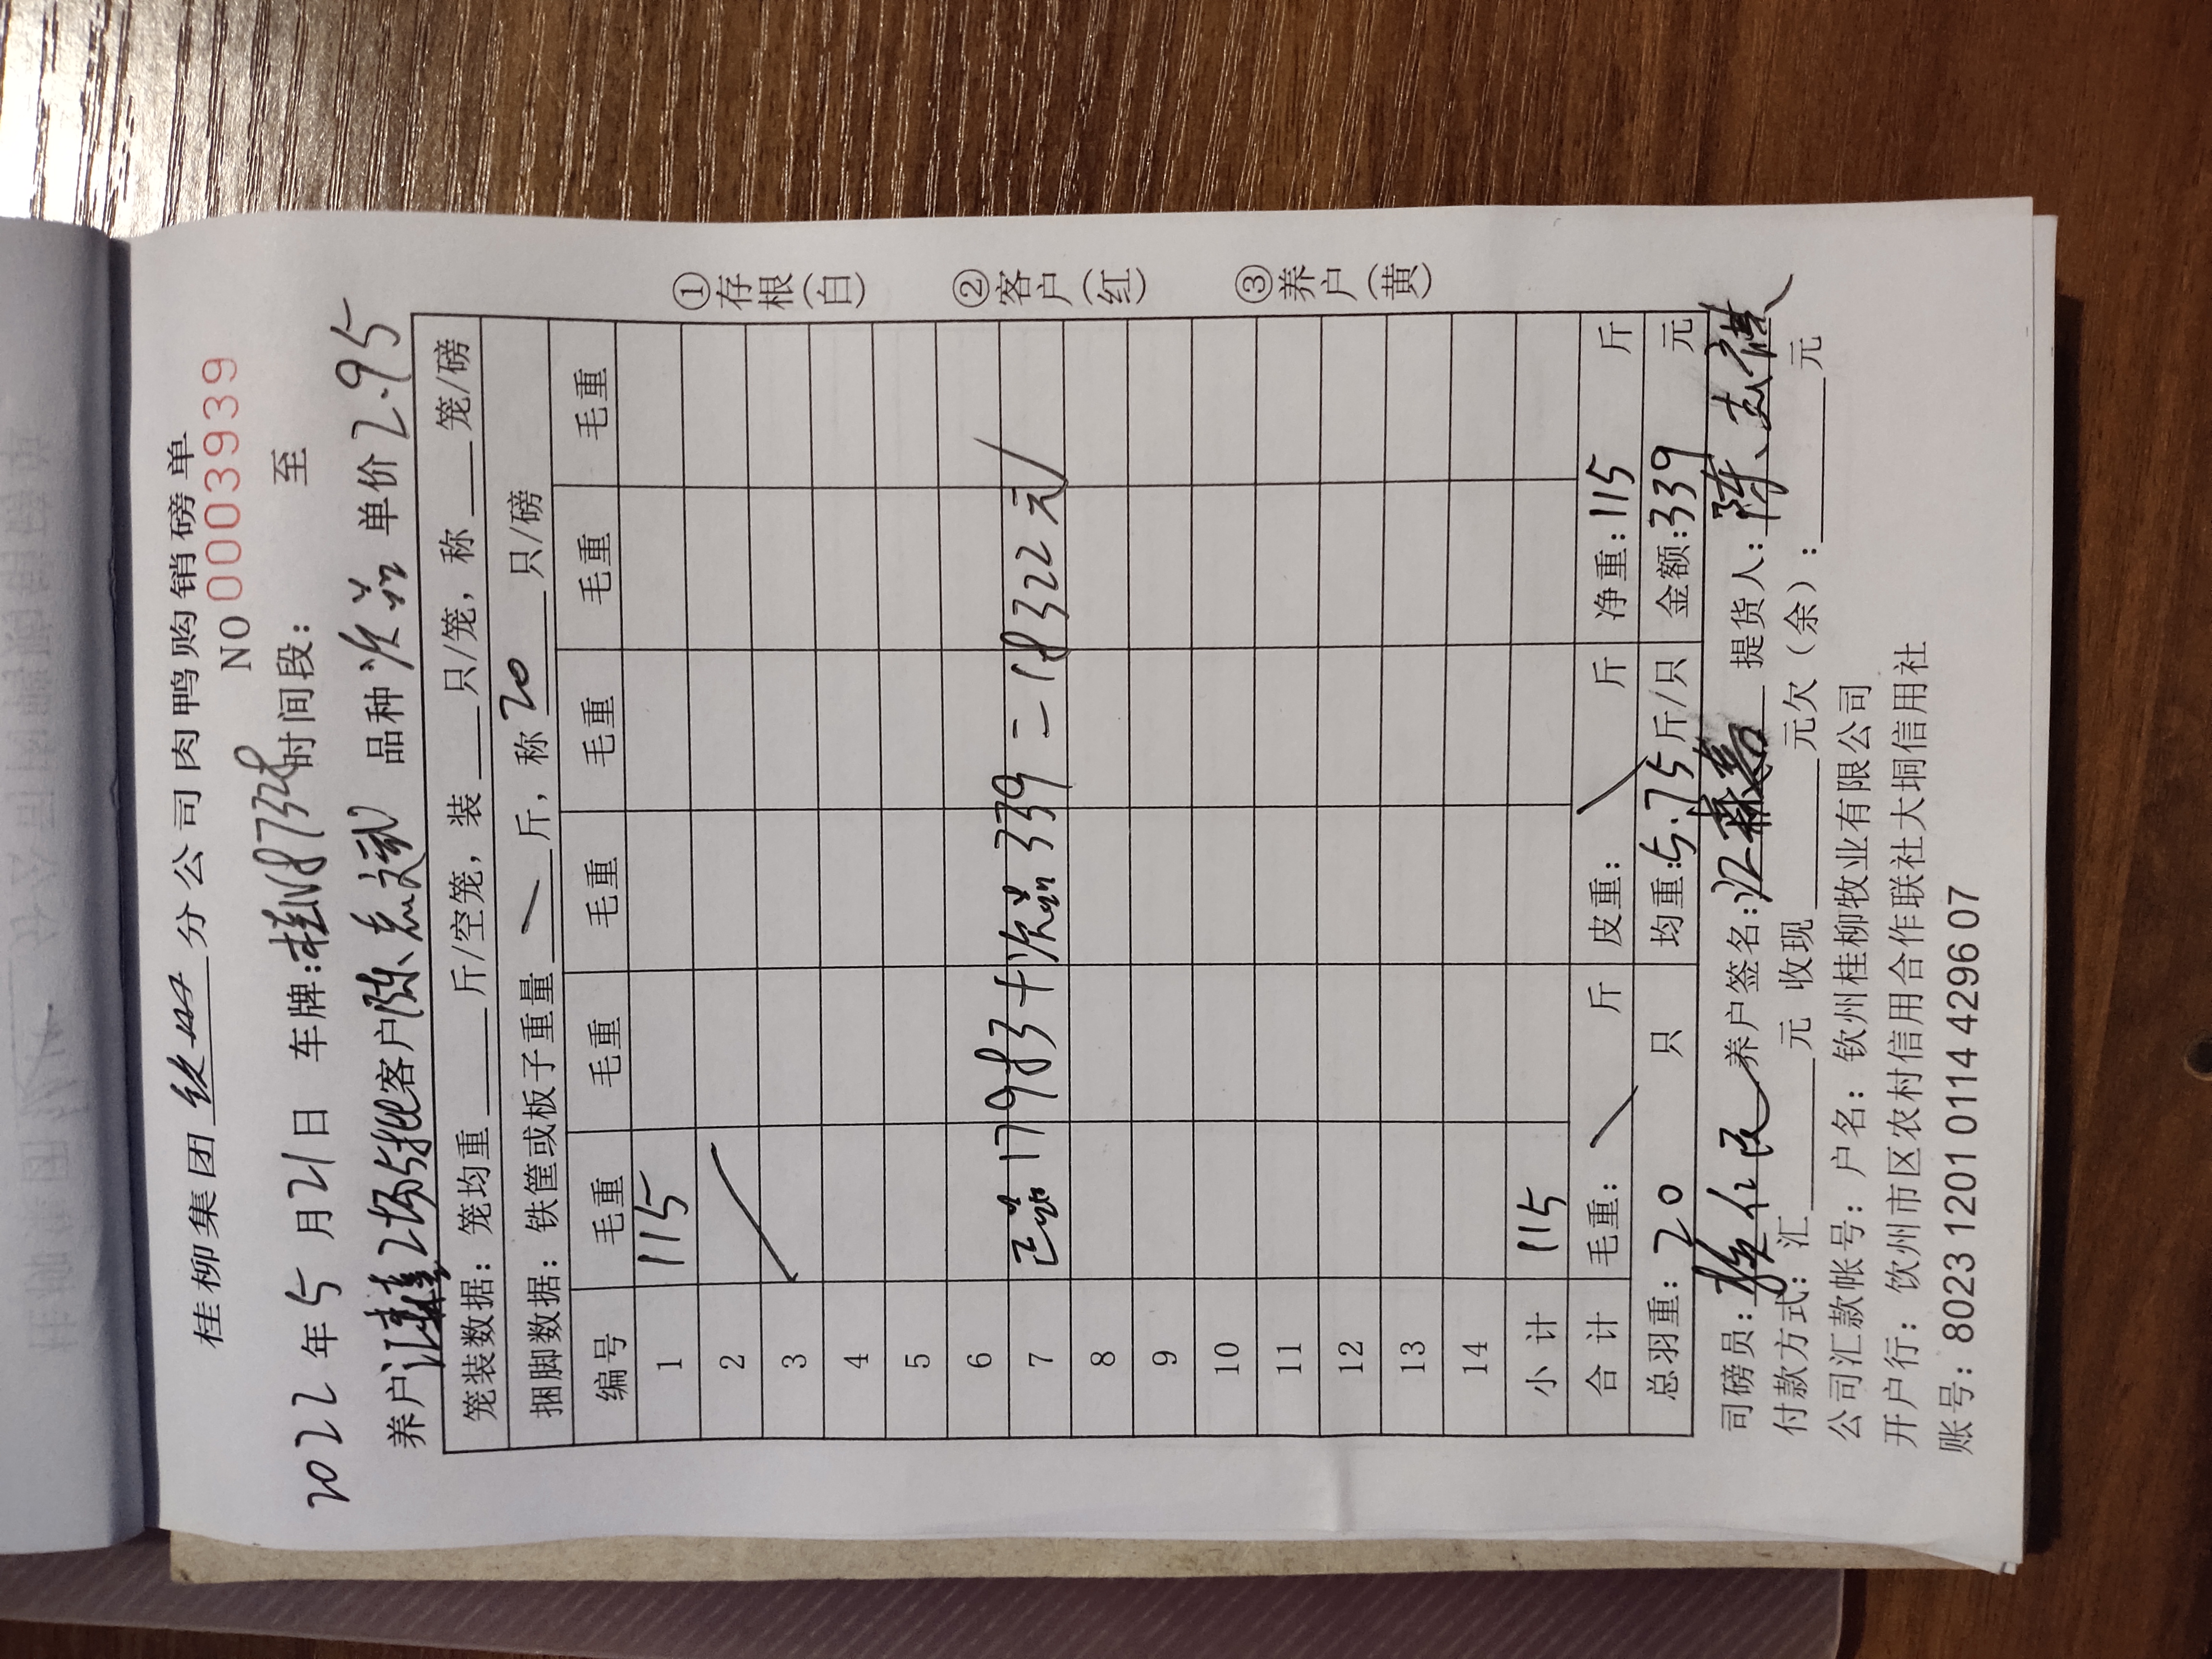 桂柳集团 钦州 分公司肉鸭购销磅单
NO 0003939
2022年5月21日 车牌:桂N8732 时间段: 至
养户 江 2场5批 客户 陈志斌 品种 次品 单价 2.95
笼装数据: 笼均重 斤/空笼, 装 只/笼, 称 笼/磅
捆脚数据: 铁筐或板子重量 \ 斤, 称 20 只/磅
编号 毛重 毛重 毛重 毛重 毛重 毛重
1 115
2
3
4
5
6
7 正品17983+次品339=18322元
8
9
10
11
12
13
14
小计 115
合计 毛重: \ 斤 皮重: \ 斤 净重:115 斤
总羽重: 20 只 均重:5.75斤/只 金额:339 元
司磅员: 养户签名:江 提货人: 陈
付款方式: 汇 元 收现 元欠(余): 元
公司汇款帐号: 户名: 钦州桂柳牧业有限公司
开户行: 饮州市区农村信用合作联社大垌信用社
账号: 8023 1201 0114 4296 07
①存根(白)
②客户(红)
③养户(黄)